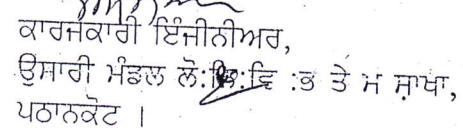 ਕਾਰਜਕਾਰੀ ਇੰਜੀਨੀਅਰ,
ਉਸਾਰੀ ਮੰਡਲ ਲੋ: :ਵਿ :ਭ ਤੇ ਮ ਸ਼ਾਖਾ,
ਪਠਾਨਕੋਟ ।